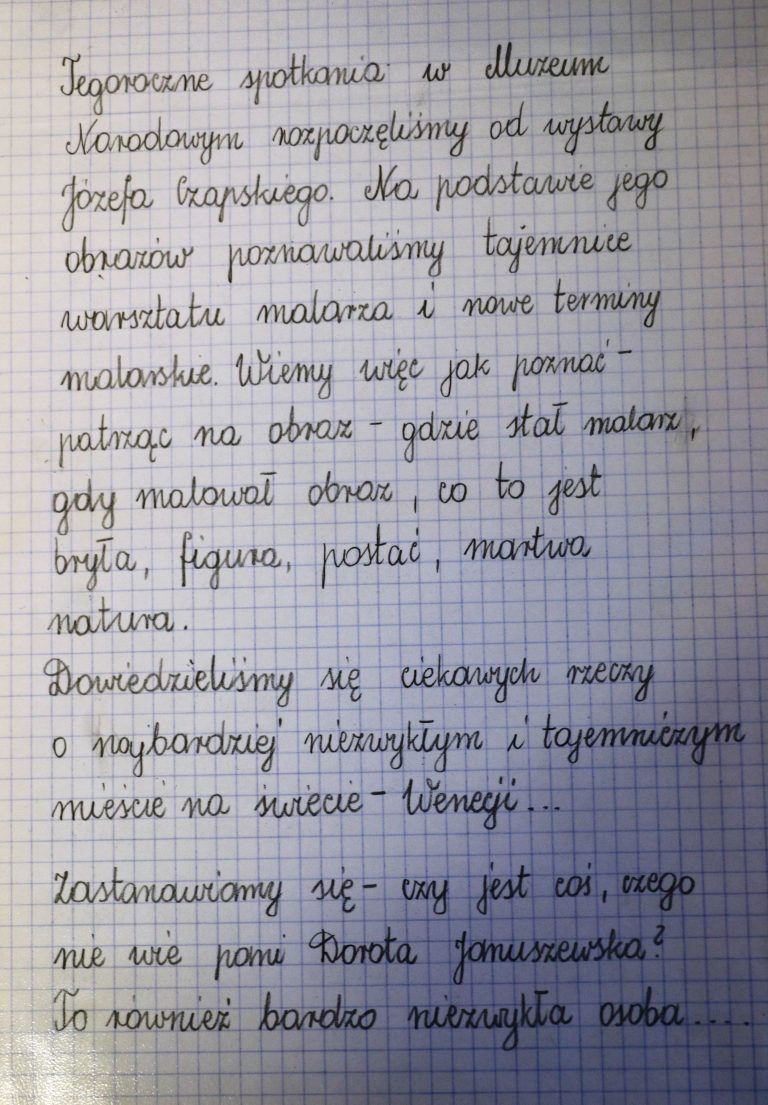 Tegoroczne spotkania w Muzeum
Narodowym rozpoczęliśmy od wystawy
Józefa Czapskiego. Na podstawie jego
obrazów poznawaliśmy tajemnice
warsztatu malarza i nowe terminy
malarskie. Wiemy więc jak poznać -
patrząc na obraz - gdzie stał malarz,
gdy malował obraz, co to jest
bryła, figura, postać, martwa
natura.
Dowiedzieliśmy się ciekawych rzeczy
o najbardziej niezwykłym i tajemniczym
mieście na świecie - Wenecji...
Zastanawiamy się - czy jest coś, czego
nie wie pani Dorota Januszewska?
To również bardzo niezwykła osoba....